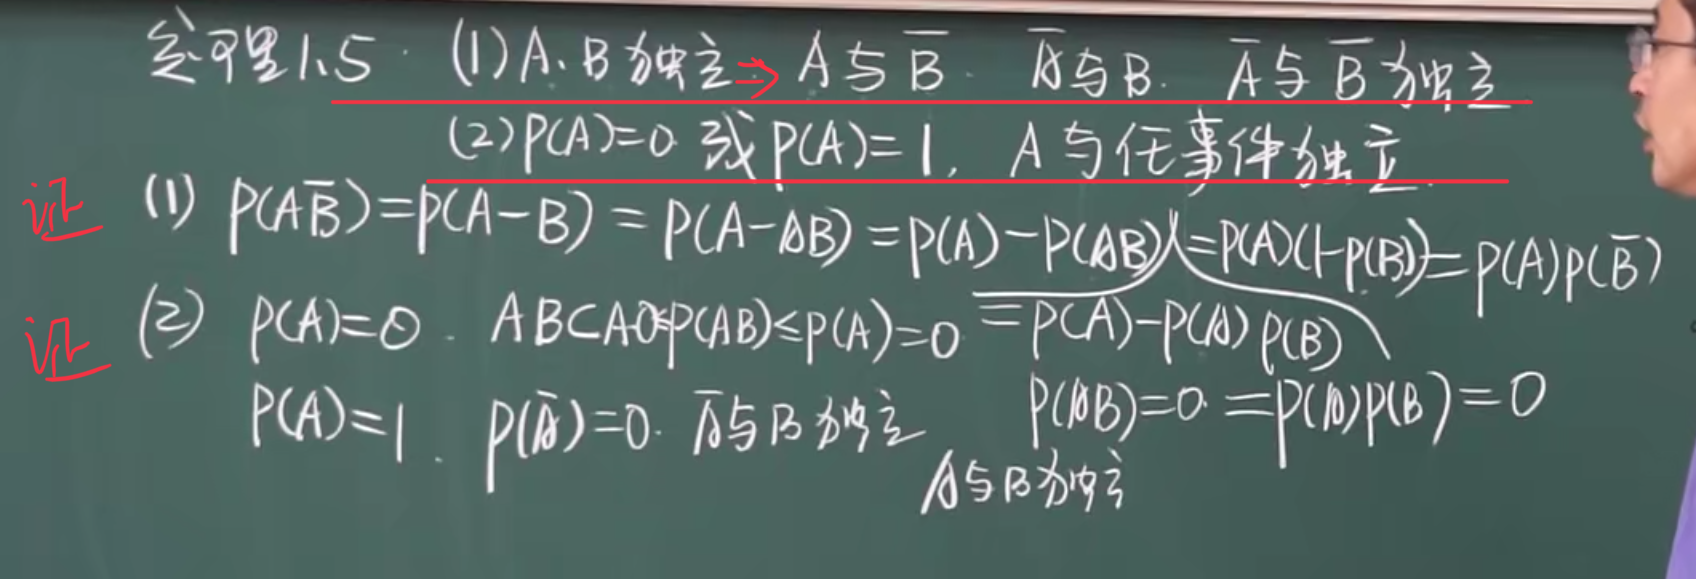 定理1.5. (1) A、B独立⇒A与B̅. A̅与B. A̅与B̅独立
(2) P(A)=0 或 P(A)=1, A与任事件独立.
证 (1) P(AB̅)=P(A-B)=P(A-AB)=P(A)-P(AB)=P(A)(1-P(B))=P(A)P(B̅)
=P(A)-P(A)P(B)
证 (2) P(A)=0. AB⊂A 0≤P(AB)≤P(A)=0
P(AB)=0=P(A)P(B)=0
P(A)=1. P(A̅)=0. A̅与B独立
A与B独立